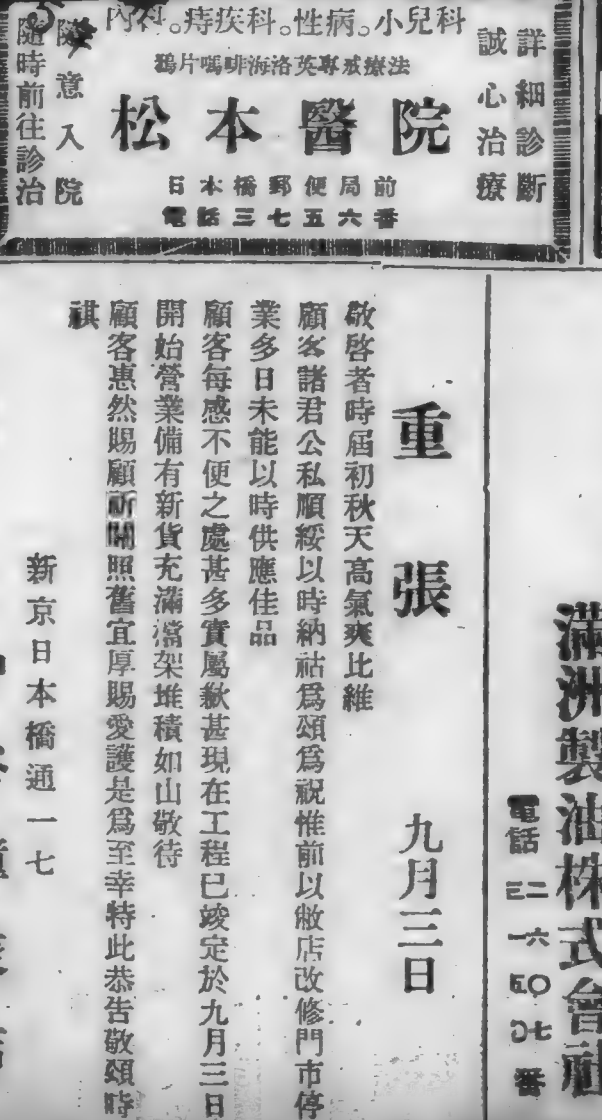 內科。痔疾科。性病。小兒科
鴉片嗎啡海洛英專戒療法
松本醫院
日本橋郵便局前
電話三七五六番
詳細診斷
誠心治療
隨意入院
隨時前往診治
滿洲製油株式會社
電話
二六〇七
三一五
番
重張
九月三日
敬啓者時屆初秋天高氣爽比維
顧客諸君公私順綏以時納祜爲頌爲祝惟前以敝店改修門市停
業多日未能以時供應佳品
顧客每感不便之處甚多實屬歉甚現在工程已竣定於九月三日
開始營業備有新貨充滿檔架堆積如山敬待
顧客惠然賜顧新開照舊宜厚賜愛護是爲至幸特此恭告敬頌時
祺
新京日本橋通一七